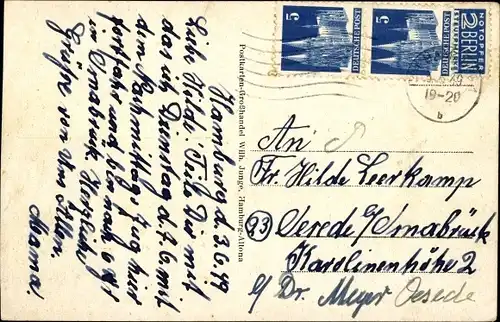 Hamburg d. 3.6.49
Liebe Hilde! Teile Dir mit
das ich Dienstag d. 7.6. mit
dem Nachmittagszug hier
fortfahre und bin nach 6 Uhr
in Osnabrück. Herzliche
Grüße von Uns Allen.
Mama
Postkarten-Großhandel Wilh. Junge, Hamburg-Altona
5
DEUTSCHE POST
5
DEUTSCHE POST
NOTOPFER
2 BERLIN
STEUERMARKE
19-20
b
An
Fr. Hilde Leerkamp
(23) Oesede b/Osnabrück
Karolinenhöhe 2
b/ Dr. Meyer Oesede